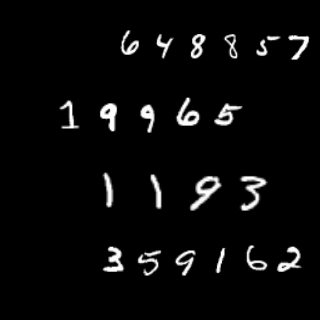 648857
19965
1193
359162